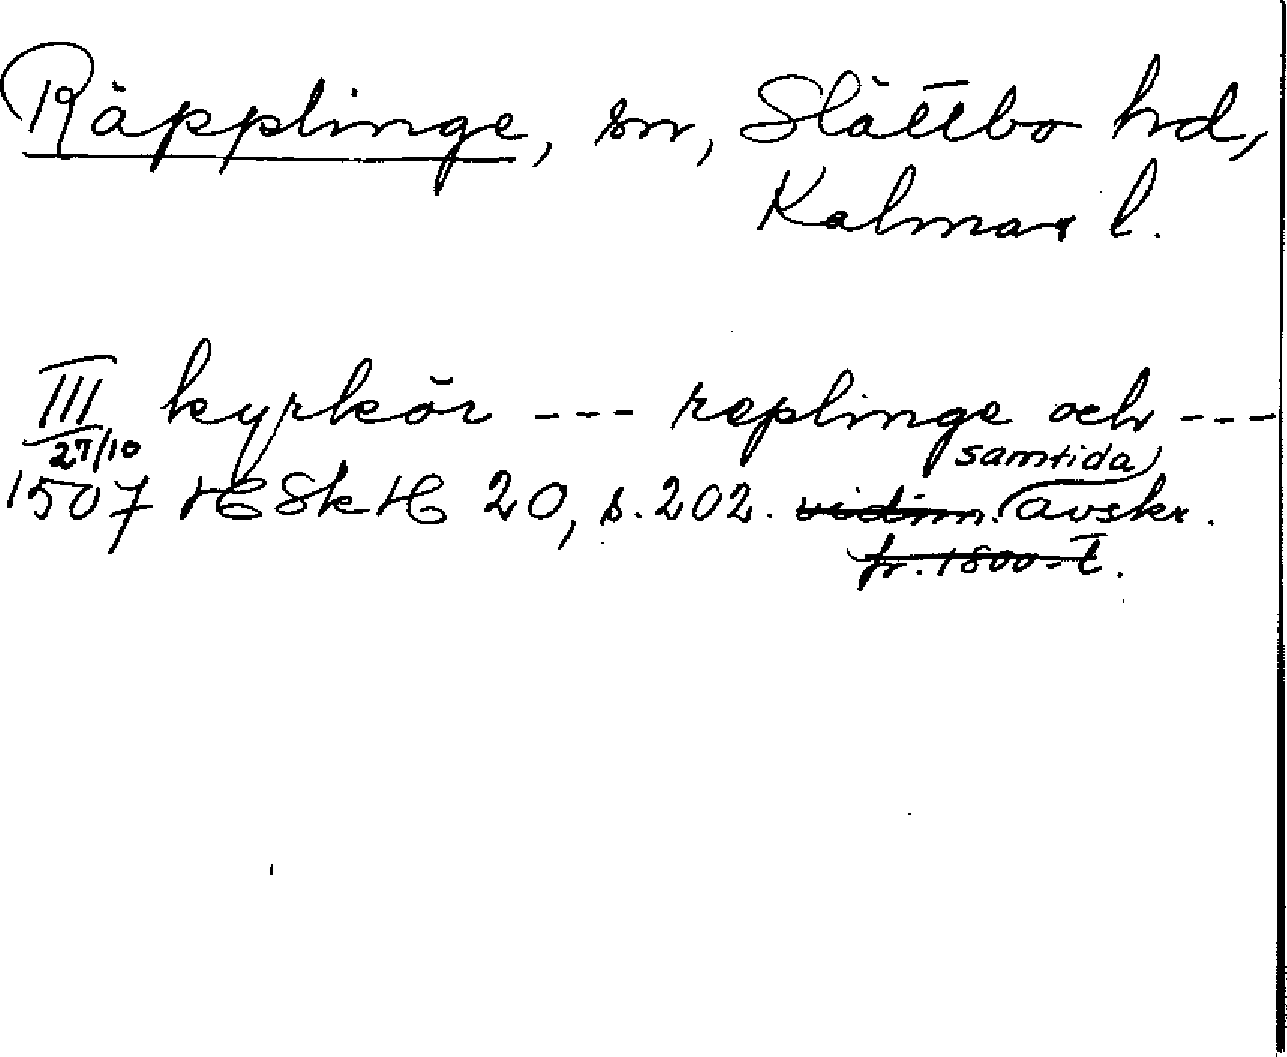 Räpplinge, sn, Slättbo hd,
Kalmar l.
III kyrkör --- replinge och ---
27/10 samtida
1507 HSkH 20, s. 202. vidim. avskr.
fr. 1800-t.